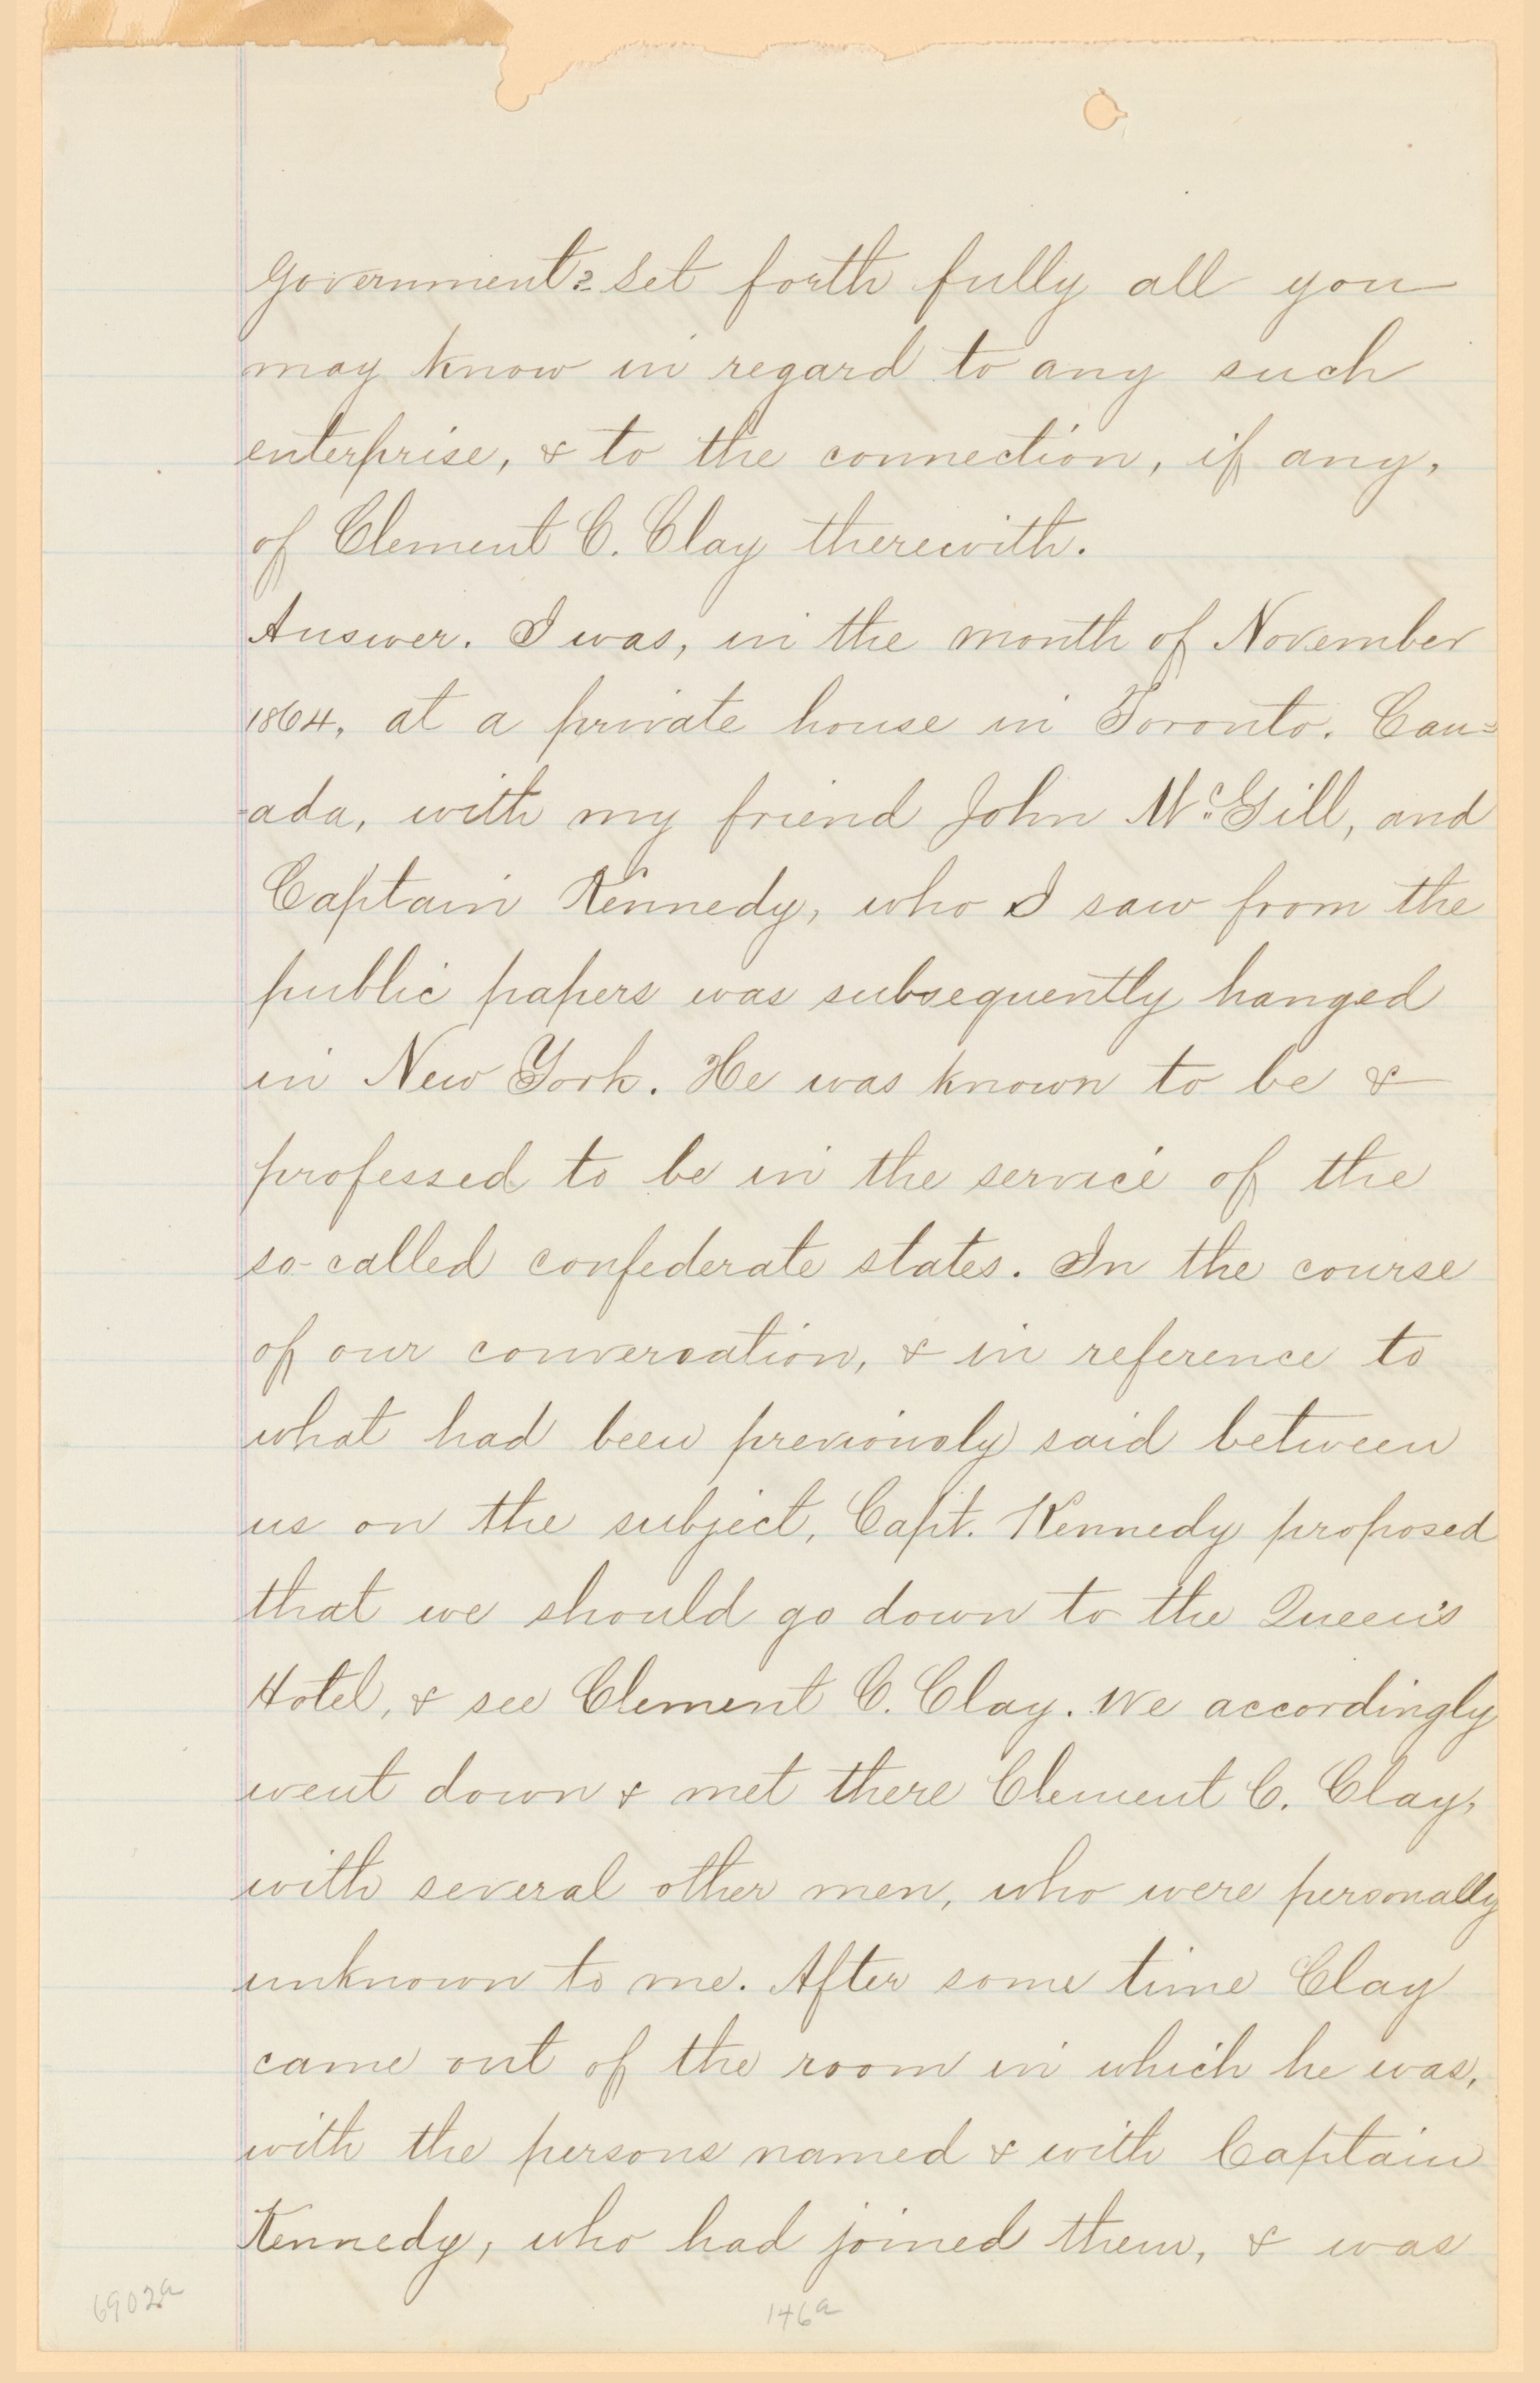 Government? Set forth fully all you
may know in regard to any such
enterprise, & to the connection, if any,
of Clement C. Clay therewith.
Answer. I was, in the month of November
1864, at a private house in Toronto. Can=
-ada, with my friend John McGill, and
Captain Kennedy, who I saw from the
public papers was subsequently hanged
in New York. He was known to be &
professed to be in the service of the
so-called confederate states. In the course
of our conversation, & in reference to
what had been previously said between
us on the subject, Capt. Kennedy proposed
that we should go down to the Queen's
Hotel, & see Clement C. Clay. We accordingly
went down & met there Clement C. Clay,
with several other men, who were personally
unknown to me. After some time Clay
came out of the room in which he was,
with the persons named & with Captain
Kennedy, who had joined them, & was
6902a
146a